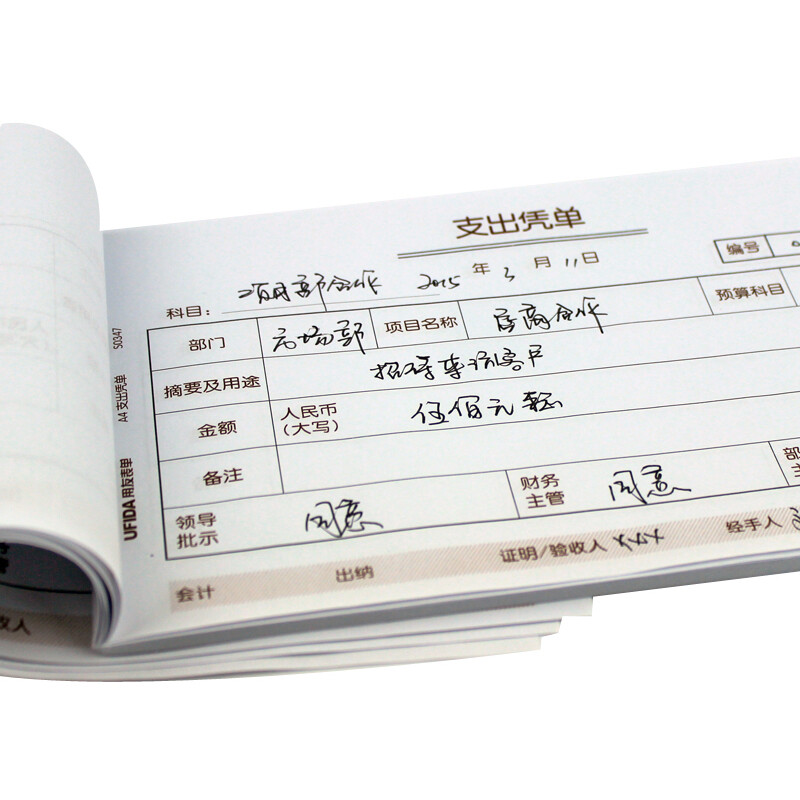 支出凭单
编号
科目：项目部合作 2015 年 3 月 11 日
部门 市场部 项目名称 合作 预算科目
摘要及用途 招待来访客户
金额 人民币（大写） 伍佰元整
备注
领导批示 同意 财务主管 同意 部
会计 出纳 证明/验收人 经手人
UFIDA 用友表单 A4 支出凭单 S0347
收人